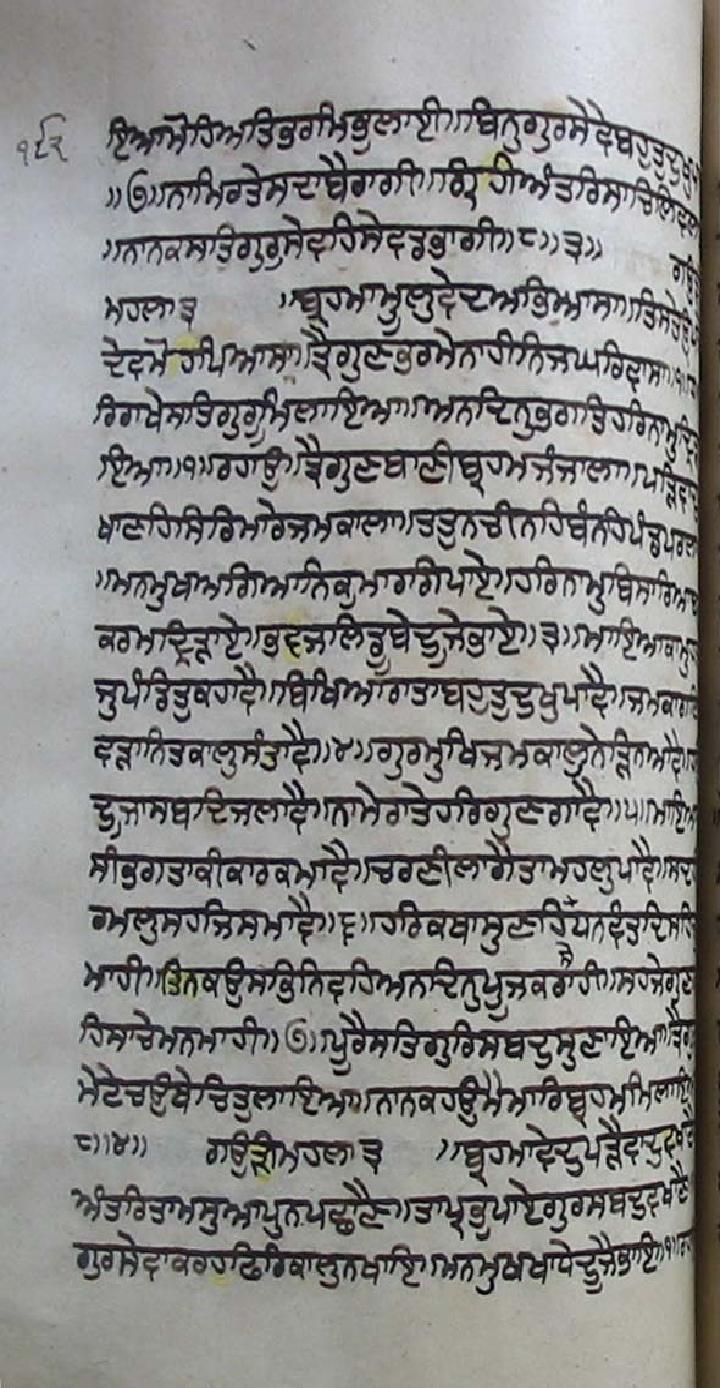 ੧੯੨
ਇਆਮੋਹਿਅਤਿਭਰਮਿਭੁਲਾਈ॥ਬਿਨੁਗੁਰਸੇਵੇਬਹੁਤੁਦੁਖੁ
॥੭॥ਨਾਮਿਰਤੇਸਦਾਬੈਰਾਗੀ॥ਗ੍ਰਿਹੀਅੰਤਰਿਸਾਚਿਲਿਵਲਾ
॥ਨਾਨਕਸਤਿਗੁਰੁਸੇਵਹਿਸੇਵਡਭਾਗੀ॥੮॥੩॥ ਗਉੜੀ
ਮਹਲਾ੩ ॥ਬ੍ਰਹਮਾਮੂਲੁਵੇਦਅਭਿਆਸਾ॥ਤਿਸਤੇਉਪ
ਦੇਵਮੋਹਪਿਆਸਾ॥ਤ੍ਰੈਗੁਣਭਰਮੇਨਾਹੀਨਿਜਘਰਿਵਾਸਾ॥੧॥ਹ
ਰਿਰਾਖੇਸਤਿਗੁਰੂਮਿਲਾਇਆ॥ਅਨਦਿਨੁਭਗਤਿਹਰਿਨਾਮੁਦ੍ਰਿੜਾ
ਇਆ॥੧॥ਰਹਾਉ॥ਤ੍ਰੈਗੁਣਬਾਣੀਬ੍ਰਹਮਜੰਜਾਲਾ॥ਪੜਿਵਾਦ
ਖਾਣਹਿਸਿਰਿਮਾਰੇਜਮਕਾਲਾ॥ਤਤੁਨਚੀਨਹਿਬੰਨਹਿਪੰਡਪਰਾਲਾ
॥ਮਨਮੁਖਅਗਿਆਨਿਕੁਮਾਰਗਿਪਾਏ॥ਹਰਿਨਾਮੁਬਿਸਾਰਿਆਬ
ਕਰਮਦ੍ਰਿੜਾਏ॥ਭਵਜਲਿਡੂਬੇਦੂਜੇਭਾਏ॥੩॥ਮਾਇਆਕਾਮੁਹ
ਜੁਪੰਡਿਤੁਕਹਾਵੈ॥ਬਿਖਿਆਰਾਤਾਬਹੁਤੁਦੁਖੁਪਾਵੈ॥ਜਮਕਾਗਲਿ
ਵੜਾਨਿਤਕਾਲੁਸੰਤਾਵੈ॥੪॥ਗੁਰਮੁਖਿਜਮਕਾਲੁਨੇੜਿਨਆਵੈ॥ਹ
ਦੂਜਾਸਬਦਿਜਲਾਵੈ॥ਨਾਮੇਰਾਤੇਹਰਿਗੁਣਗਾਵੈ॥੫॥ਮਾਇਆ
ਸੀਭਗਤਾਕੀਕਾਰਕਮਾਵੈ॥ਚਰਣੀਲਾਗੈਤਾਮਹਲੁਪਾਵੈ॥ਸਦ
ਰਮਲੁਸਹਜਿਸਮਾਵੈ॥੬॥ਹਰਿਕਥਾਸੁਣਹਿਧਨਵੰਤਦਿਸਹਿ
ਮਾਹੀ॥ਤਿਨਕਉਸਭਿਨਿਵਹਿਅਨਦਿਨੁਪੂਜਕਰਾਹੀ॥ਸਹਜੇਗੁਣ
ਹਿਸਾਚੇਮਨਮਾਹੀ॥੭॥ਪੂਰੈਸਤਿਗੁਰਿਸਬਦੁਸੁਣਾਇਆ॥ਤ੍ਰੈਗੁ
ਮੇਟੇਚਉਥੇਚਿਤੁਲਾਇਆ॥ਨਾਨਕਹਉਮੈਮਾਰਿਬ੍ਰਹਮਮਿਲਾਇ
੮॥੪॥ ਗਉੜੀਮਹਲਾ੩ ॥ਬ੍ਰਹਮਾਵੇਦੁਪੜੈਵਾਦੁਵਖਾਣੈ
ਅੰਤਰਿਤਾਮਸੁਆਪੁਨਪਛਾਣੈ॥ਤਾਪ੍ਰਭੁਪਾਏਗੁਰਸਬਦੁਵਖਾਣੈ
ਗੁਰਸੇਵਾਕਰਹੁਫਿਰਿਕਾਲੁਨਖਾਇ॥ਮਨਮੁਖਖਾਧੇਦੂਜੈਭਾਇ॥੧॥ਰਹ